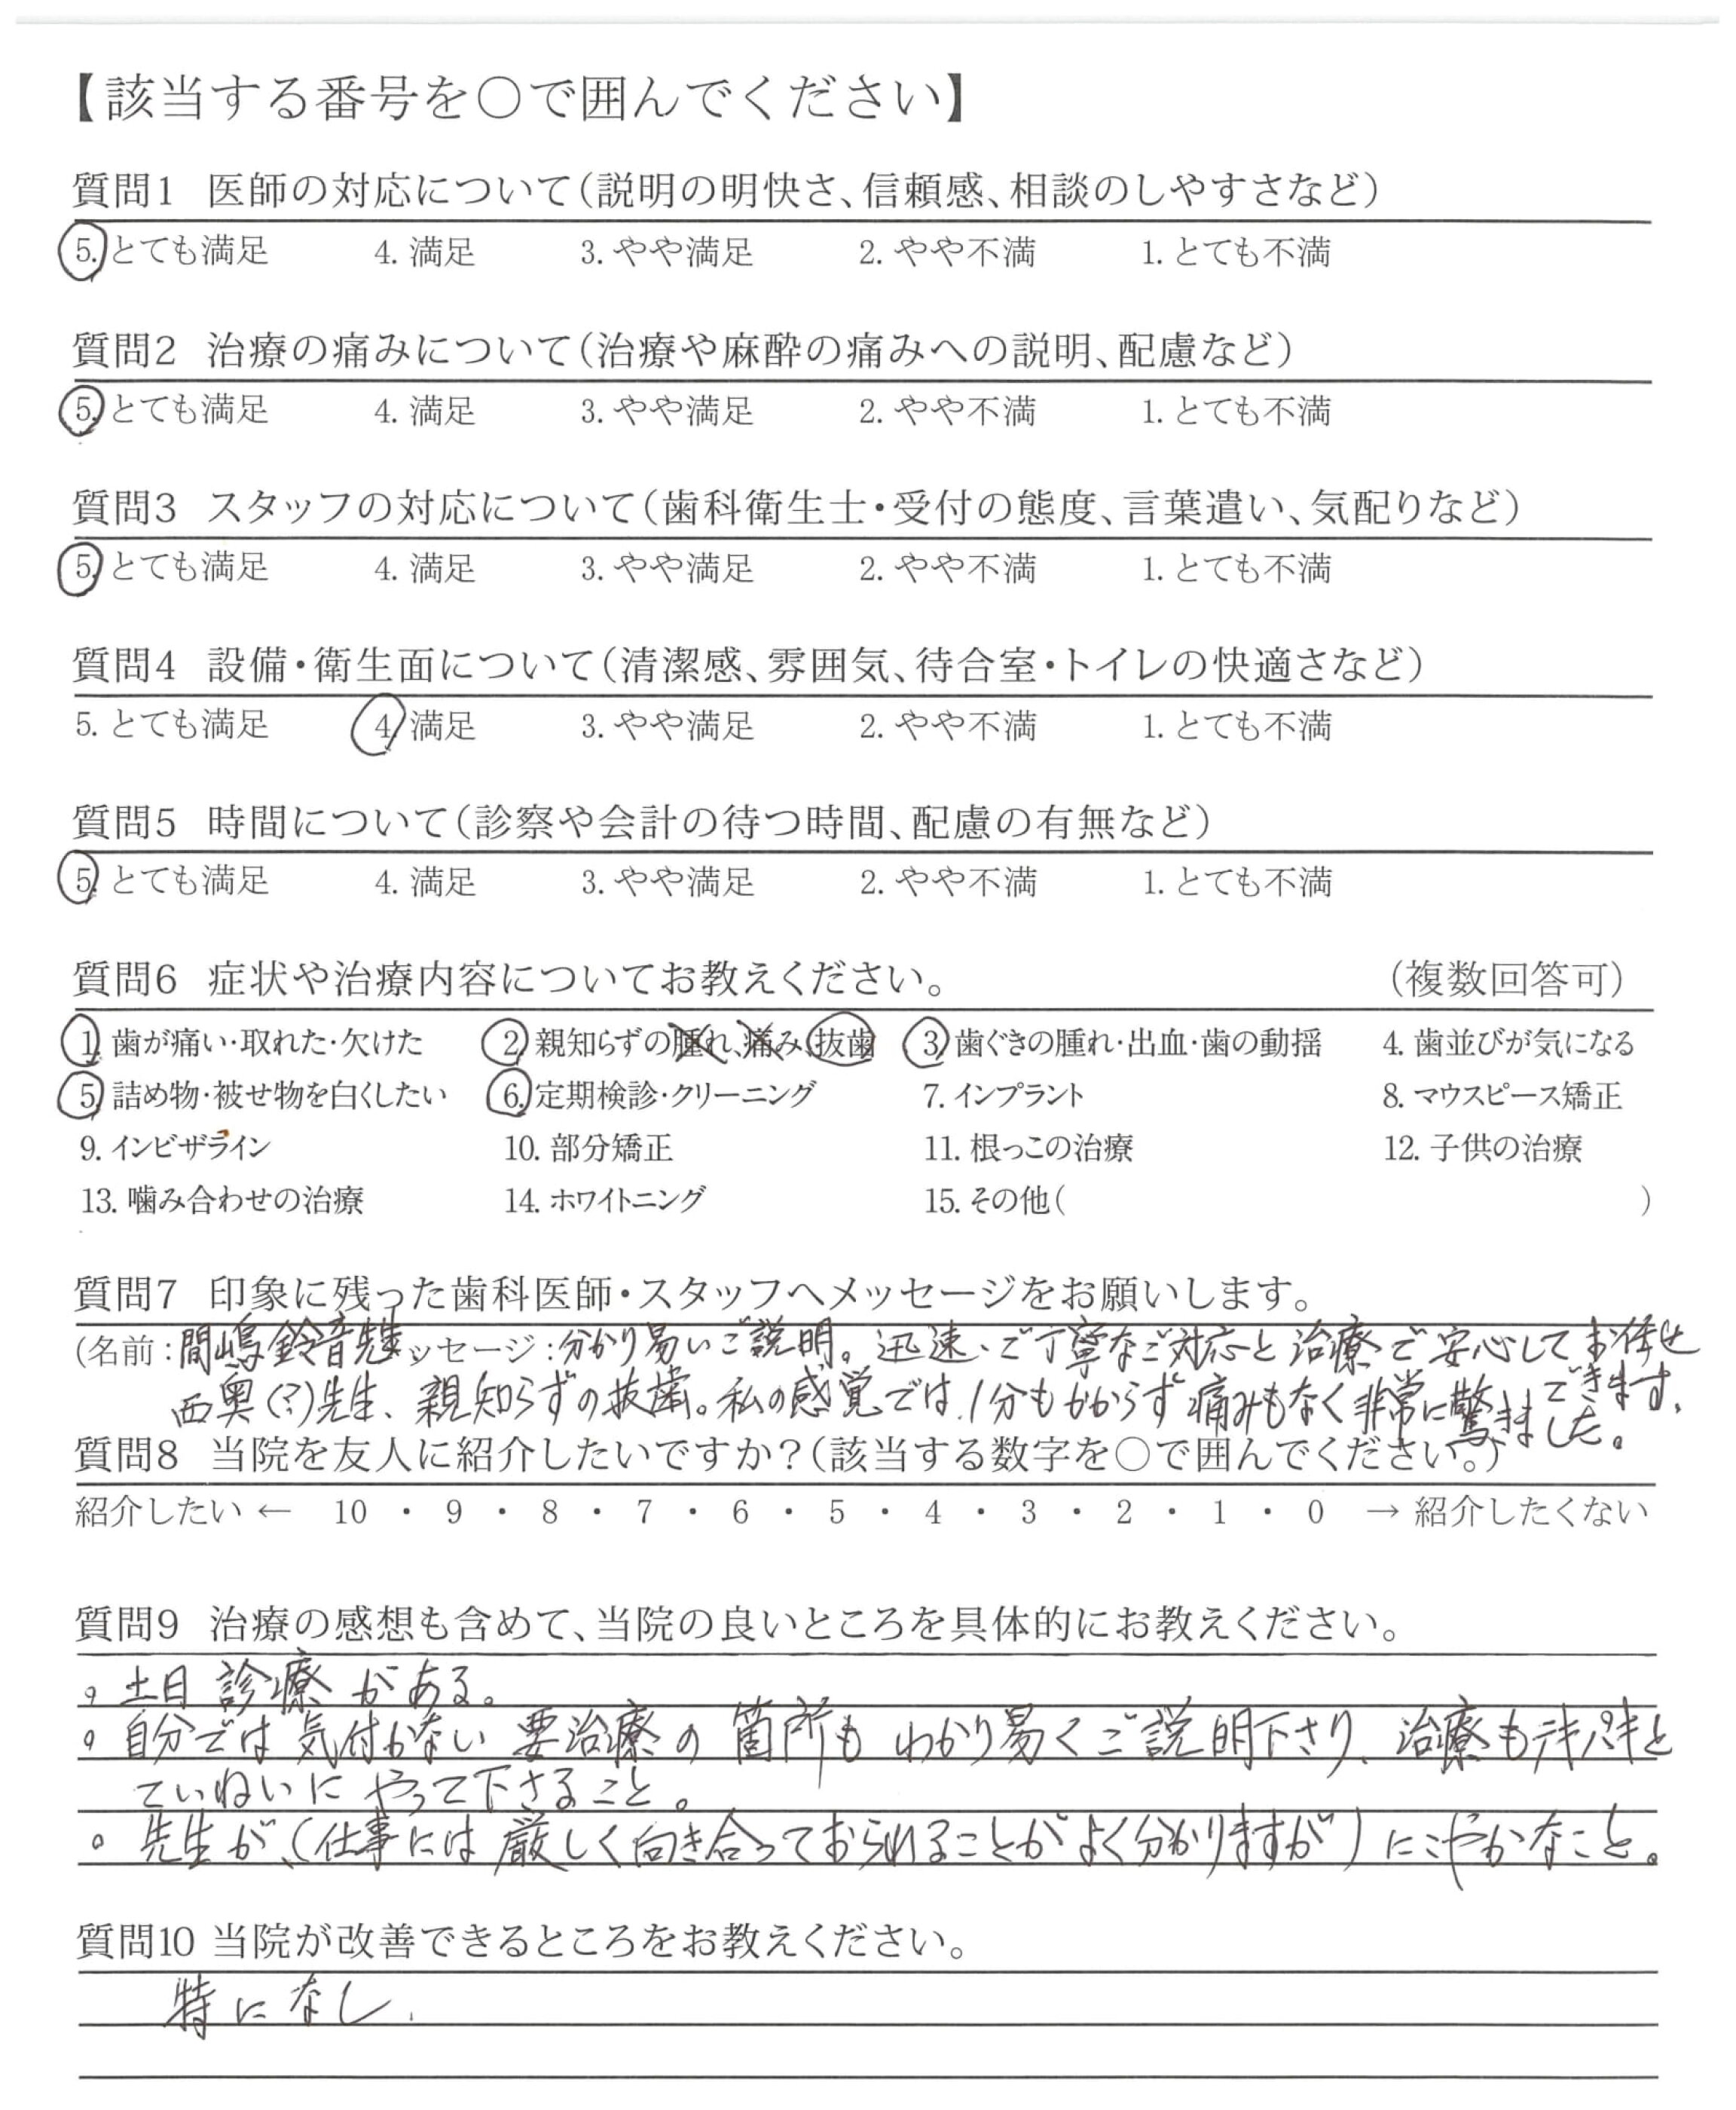 【該当する番号を○で囲んでください】
質問1 医師の対応について（説明の明快さ、信頼感、相談のしやすさなど）
5. とても満足 4. 満足 3. やや満足 2. やや不満 1. とても不満
質問2 治療の痛みについて（治療や麻酔の痛みへの説明、配慮など）
5. とても満足 4. 満足 3. やや満足 2. やや不満 1. とても不満
質問3 スタッフの対応について（歯科衛生士・受付の態度、言葉遣い、気配りなど）
5. とても満足 4. 満足 3. やや満足 2. やや不満 1. とても不満
質問4 設備・衛生面について（清潔感、雰囲気、待合室・トイレの快適さなど）
5. とても満足 4. 満足 3. やや満足 2. やや不満 1. とても不満
質問5 時間について（診察や会計の待つ時間、配慮の有無など）
5. とても満足 4. 満足 3. やや満足 2. やや不満 1. とても不満
質問6 症状や治療内容についてお教えください。 （複数回答可）
1. 歯が痛い・取れた・欠けた 2. 親知らずの腫れ、痛み、抜歯 3. 歯ぐきの腫れ・出血・歯の動揺 4. 歯並びが気になる
5. 詰め物・被せ物を白くしたい 6. 定期検診・クリーニング 7. インプラント 8. マウスピース矯正
9. インビザライン 10. 部分矯正 11. 根っこの治療 12. 子供の治療
13. 噛み合わせの治療 14. ホワイトニング 15. その他（ ）
質問7 印象に残った歯科医師・スタッフへメッセージをお願いします。
（名前：間嶋鈴音先生 メッセージ：分かり易いご説明。迅速、ご丁寧なご対応と治療で安心してお任せ
できます。
西奥（？）先生、親知らずの抜歯。私の感覚では、1分もかからず痛みもなく非常に驚きました。
質問8 当院を友人に紹介したいですか？（該当する数字を○で囲んでください。）
紹介したい ← 10 ・ 9 ・ 8 ・ 7 ・ 6 ・ 5 ・ 4 ・ 3 ・ 2 ・ 1 ・ 0 → 紹介したくない
質問9 治療の感想も含めて、当院の良いところを具体的にお教えください。
。土日診療がある。
。自分では気付かない要治療の箇所もわかり易くご説明下さり、治療もテキパキと
ていねいにやって下さること。
。先生が、（仕事には厳しく向き合っておられることがよく分かりますが）にこやかなこと。
質問10 当院が改善できるところをお教えください。
特になし.